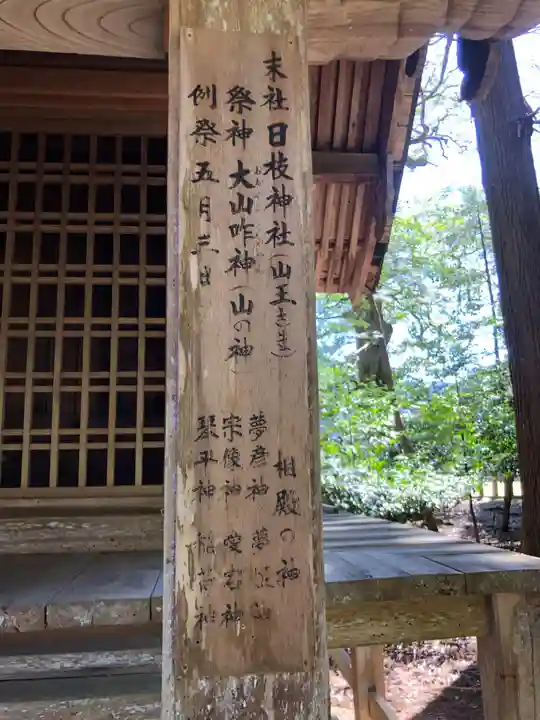 末社 日枝神社(山王さま)
祭神 大山咋神(山の神)
例祭 五月三日
相殿の神
夢彦神 夢
宗像神 愛宕神
琴平神 稲荷神